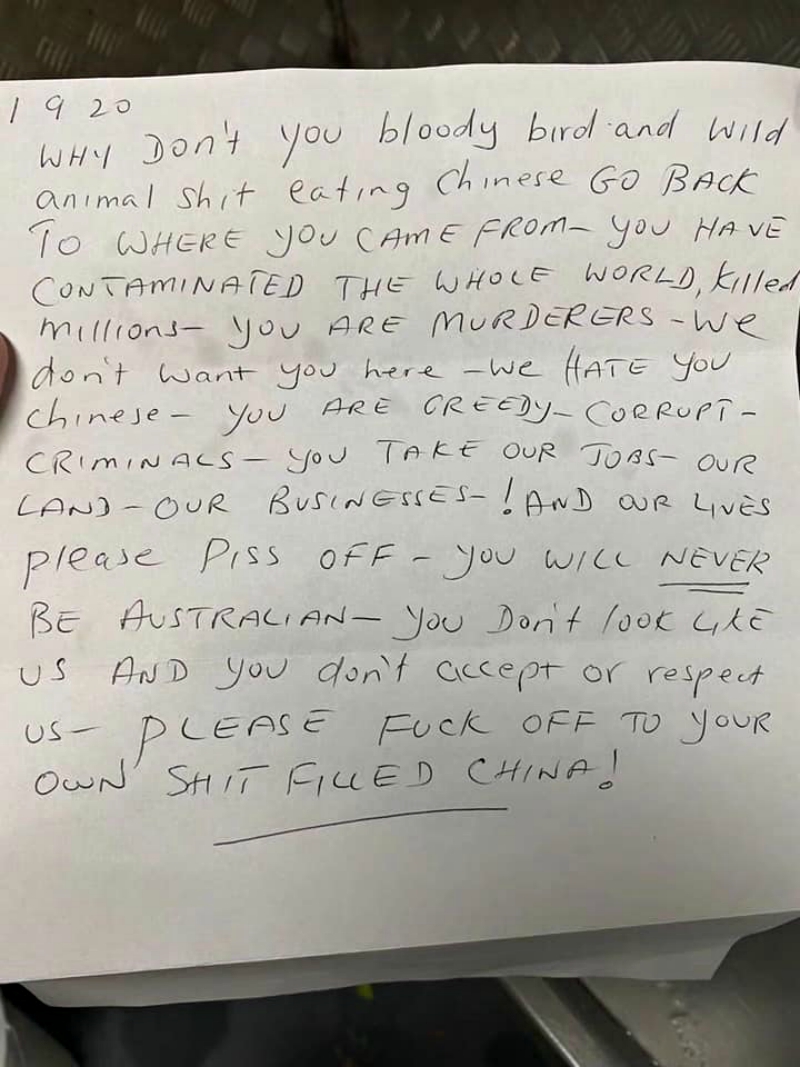 1 9 20
WHY DON't YOU bloody bird and wild
animal shit eating Chinese GO BACK
TO WHERE YOU CAME FROM- YOU HAVE
CONTAMINATED THE WHOLE WORLD, killed
millions- YOU ARE MURDERERS - We
don't want you here - we HATE YOU
Chinese - YOU ARE GREEDY - CORRUPT -
CRIMINALS - YOU TAKE OUR JOBS- OUR
LAND - OUR BUSINESSES - ! AND OUR LIVES
please PISS OFF - YOU WILL NEVER
BE AUSTRALIAN - YOU Don't look LIKE
US AND YOU don't accept or respect
US- PLEASE FUCK OFF TO YOUR
OWN SHIT FILLED CHINA!